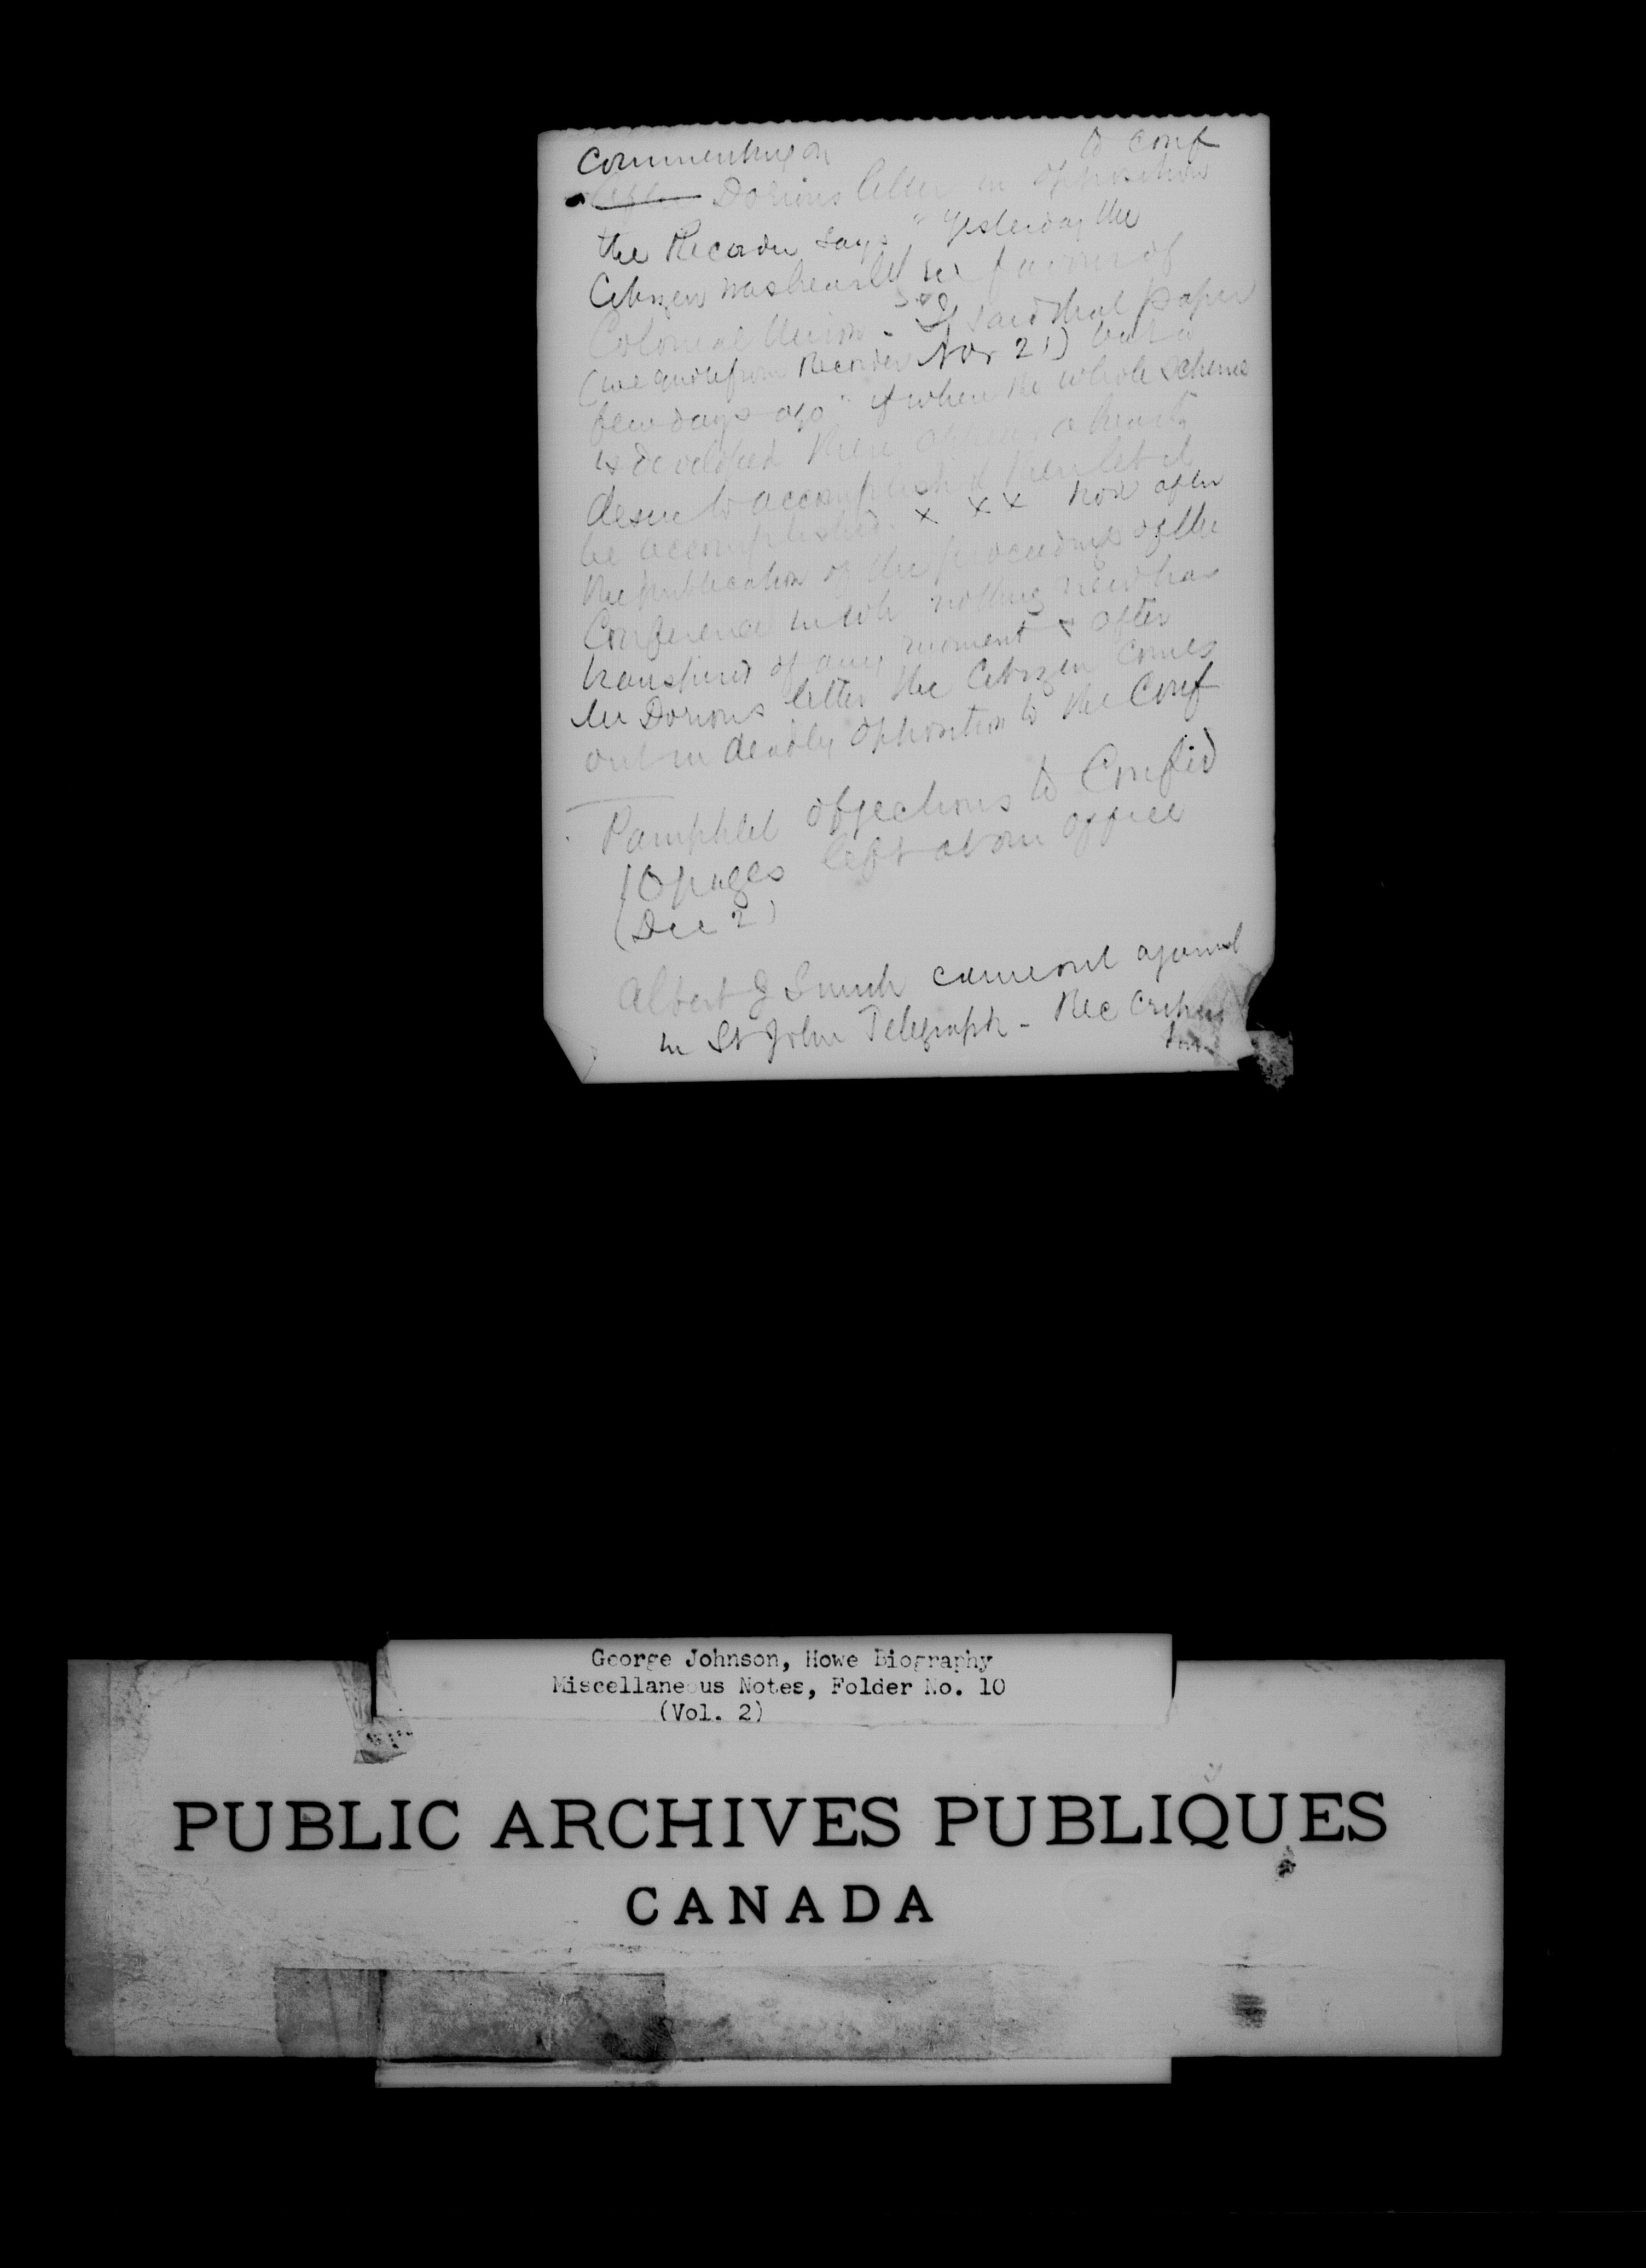 Commenting on to Conf
Dorions letter in opposition
the Recorder says "Yesterday the
Citizen was heartily in favour of
Colonial Union - "If said that paper
(we quote from Recorder Nov 21) but a
few days ago "if when the whole scheme
is developed there appears a hearty
desire to accomplish it then let it
be accomplished. x x x Now after
the publication of the proceedings of the
Conference in wh nothing new has
transpired of any moment & after
Mr Dorions letter the Citizen comes
out in deadly opposition to the Conf
Pamphlet objections to Confed
10 pages left at our office
(Dec 2)
Albert J Smith came out against
in St John Telegraph - Rec
George Johnson, Howe Biography
Miscellaneous Notes, Folder No. 10
(Vol. 2)
PUBLIC ARCHIVES PUBLIQUES
CANADA